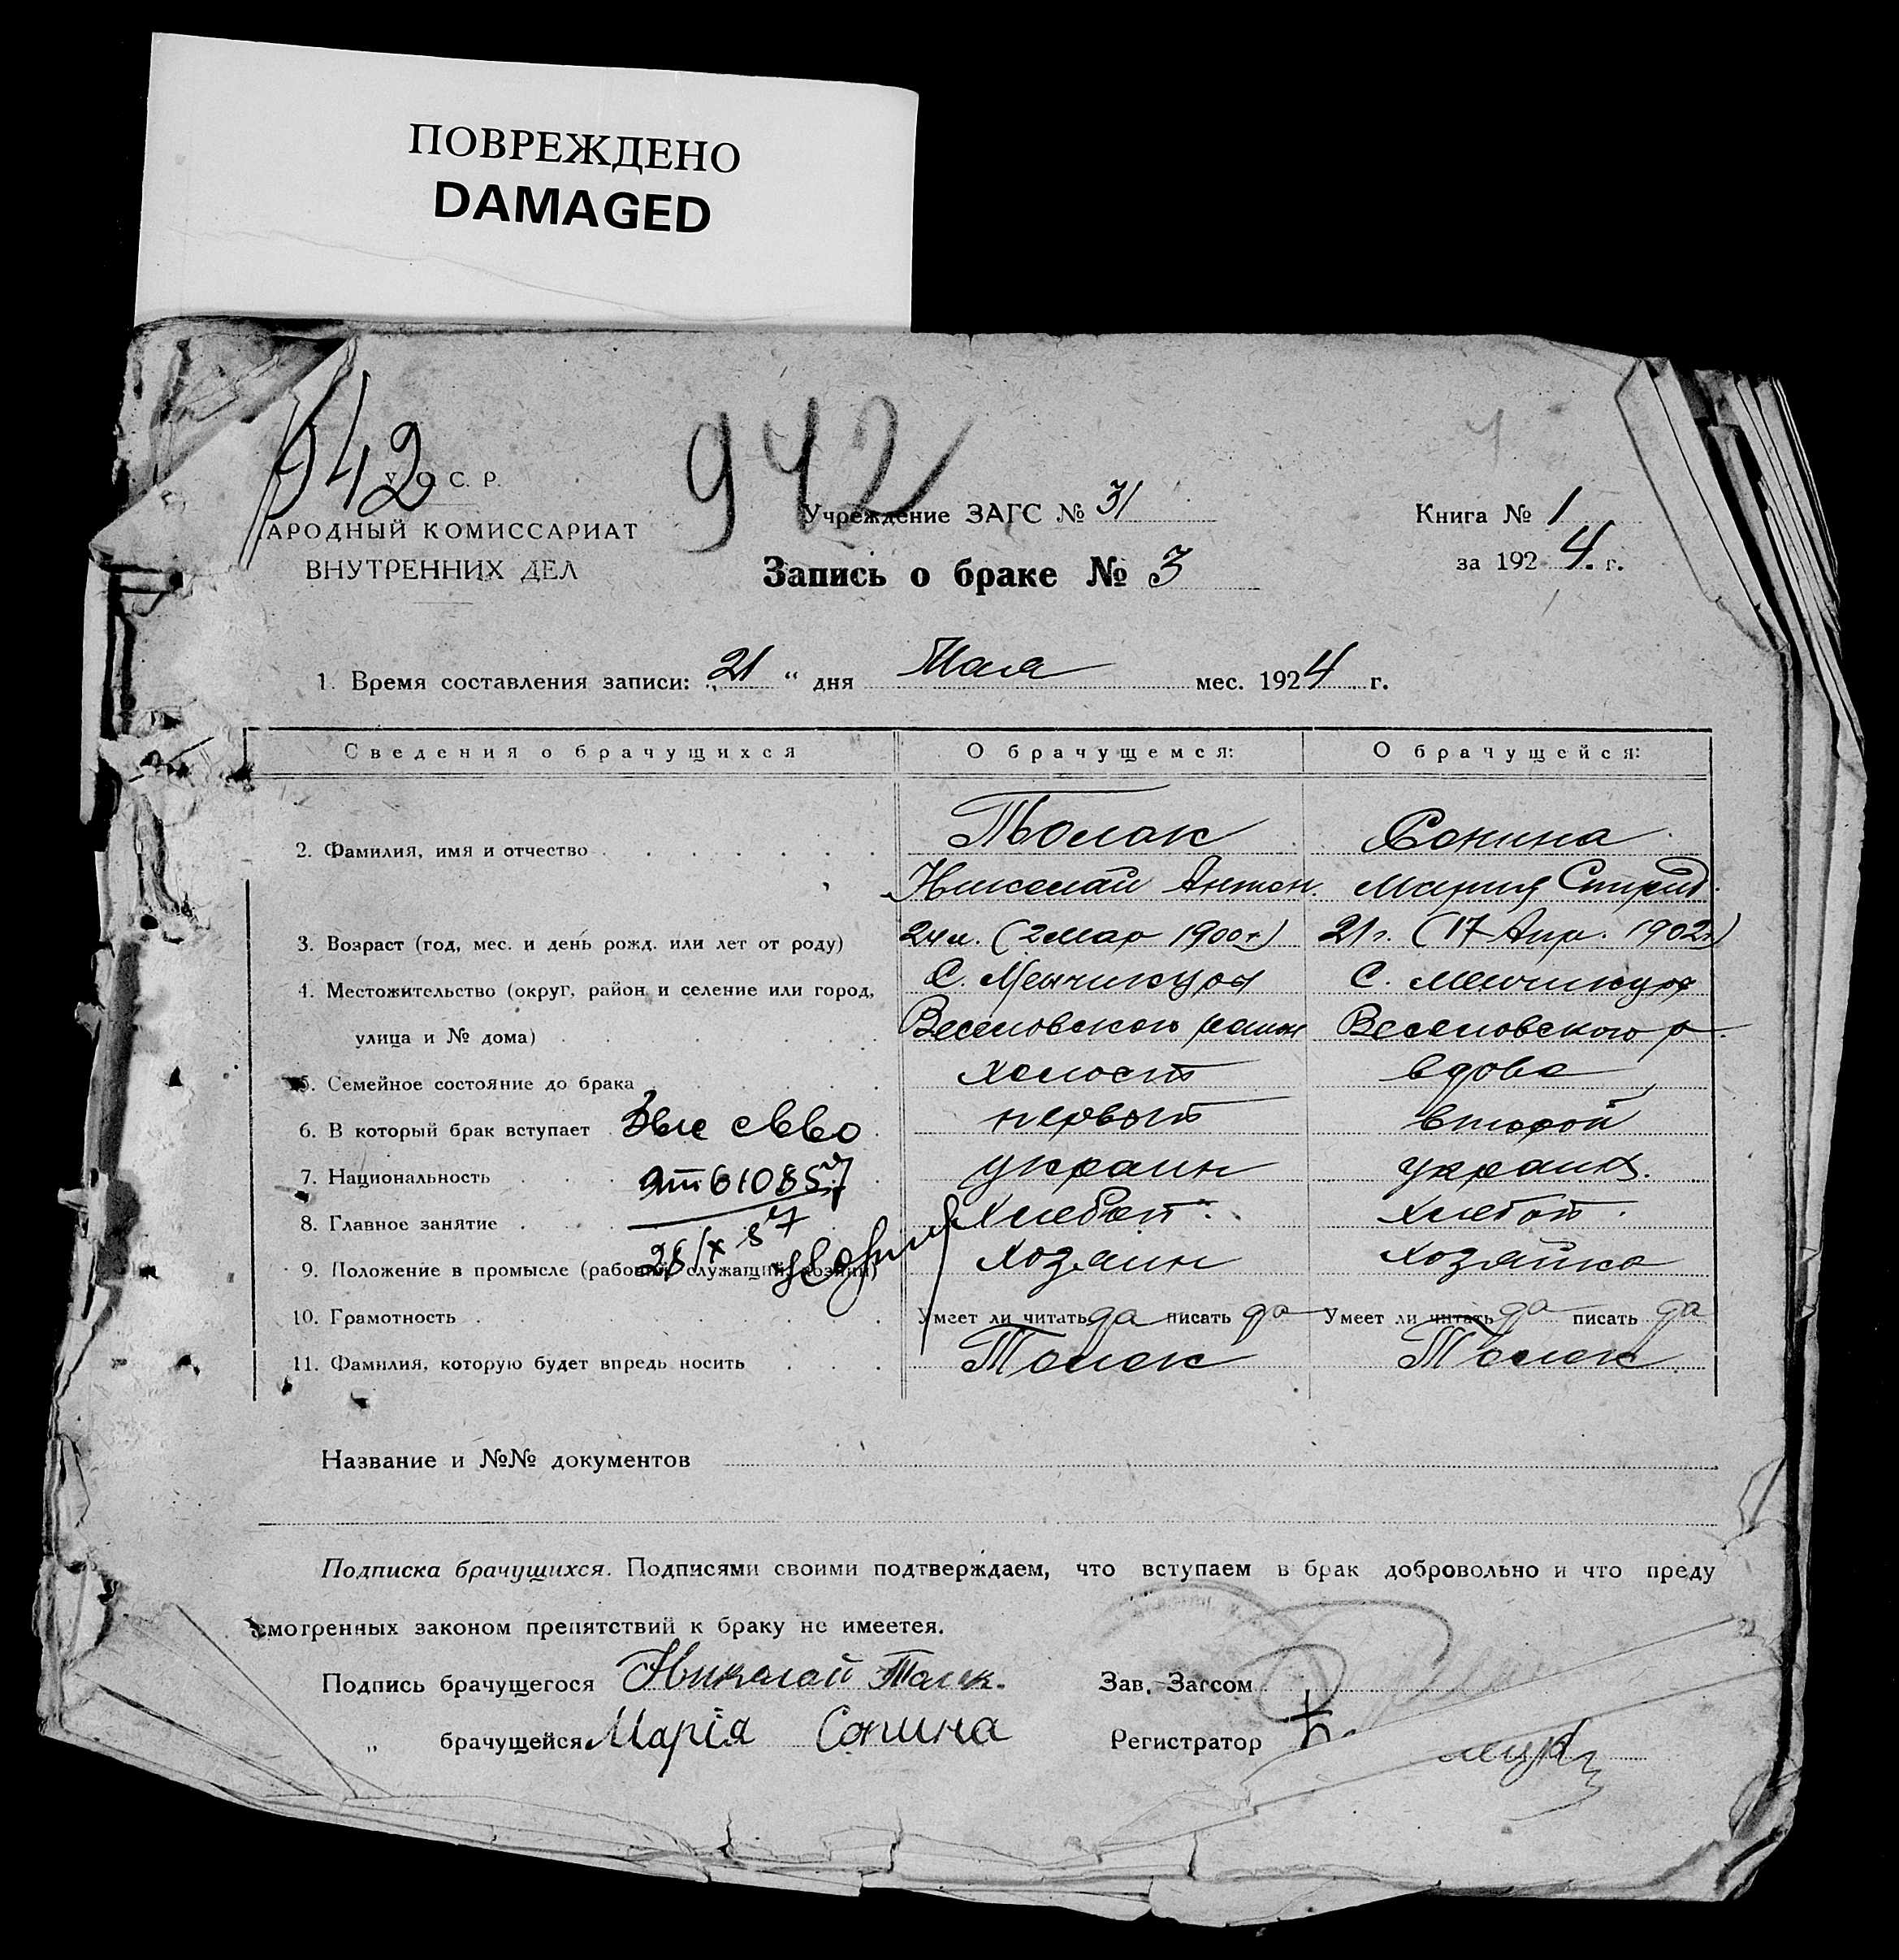 ПОВРЕЖДЕНО
DAMAGED
942
942
У. С. С. Р.
АРОДНЫЙ КОМИССАРИАТ
ВНУТРЕННИХ ДЕЛ
Учреждение ЗАГС № 31
Запись о браке № 3
Книга № 1
за 1924 г.
1. Время составления записи: „21" дня Мая мес. 1924 г.
Сведения о брачущихся О брачущемся: О брачущейся:
2. Фамилия, имя и отчество Толок Сонина
Николай Антон. Мария Спирид.
3. Возраст (год, мес. и день рожд. или лет от роду) 24 л. (2 Мар 1900 г.) 21 г. (17 Апр. 1902 г.)
4. Местожительство (округ, район и селение или город, С. Менчикуры С. Менчикуры
улица и № дома) Веселовского район Веселовского р
5. Семейное состояние до брака холост вдова
6. В который брак вступает первый второй
7. Национальность украин украин.
8. Главное занятие Хлебоп. Хлебоп.
9. Положение в промысле (рабочий, служащий, хозяин) Хозяин Хозяйка
10. Грамотность Умеет ли читать да писать да Умеет ли читать да писать да
11. Фамилия, которую будет впредь носить Толок Толок
Название и №№ документов
Подписка брачущихся. Подписями своими подтверждаем, что вступаем в брак добровольно и что преду
смотренных законом препятствий к браку не имеетея.
Подпись брачущегося Николай Толок. Зав. Загсом
„ брачущейся Марія Сонина Регистратор